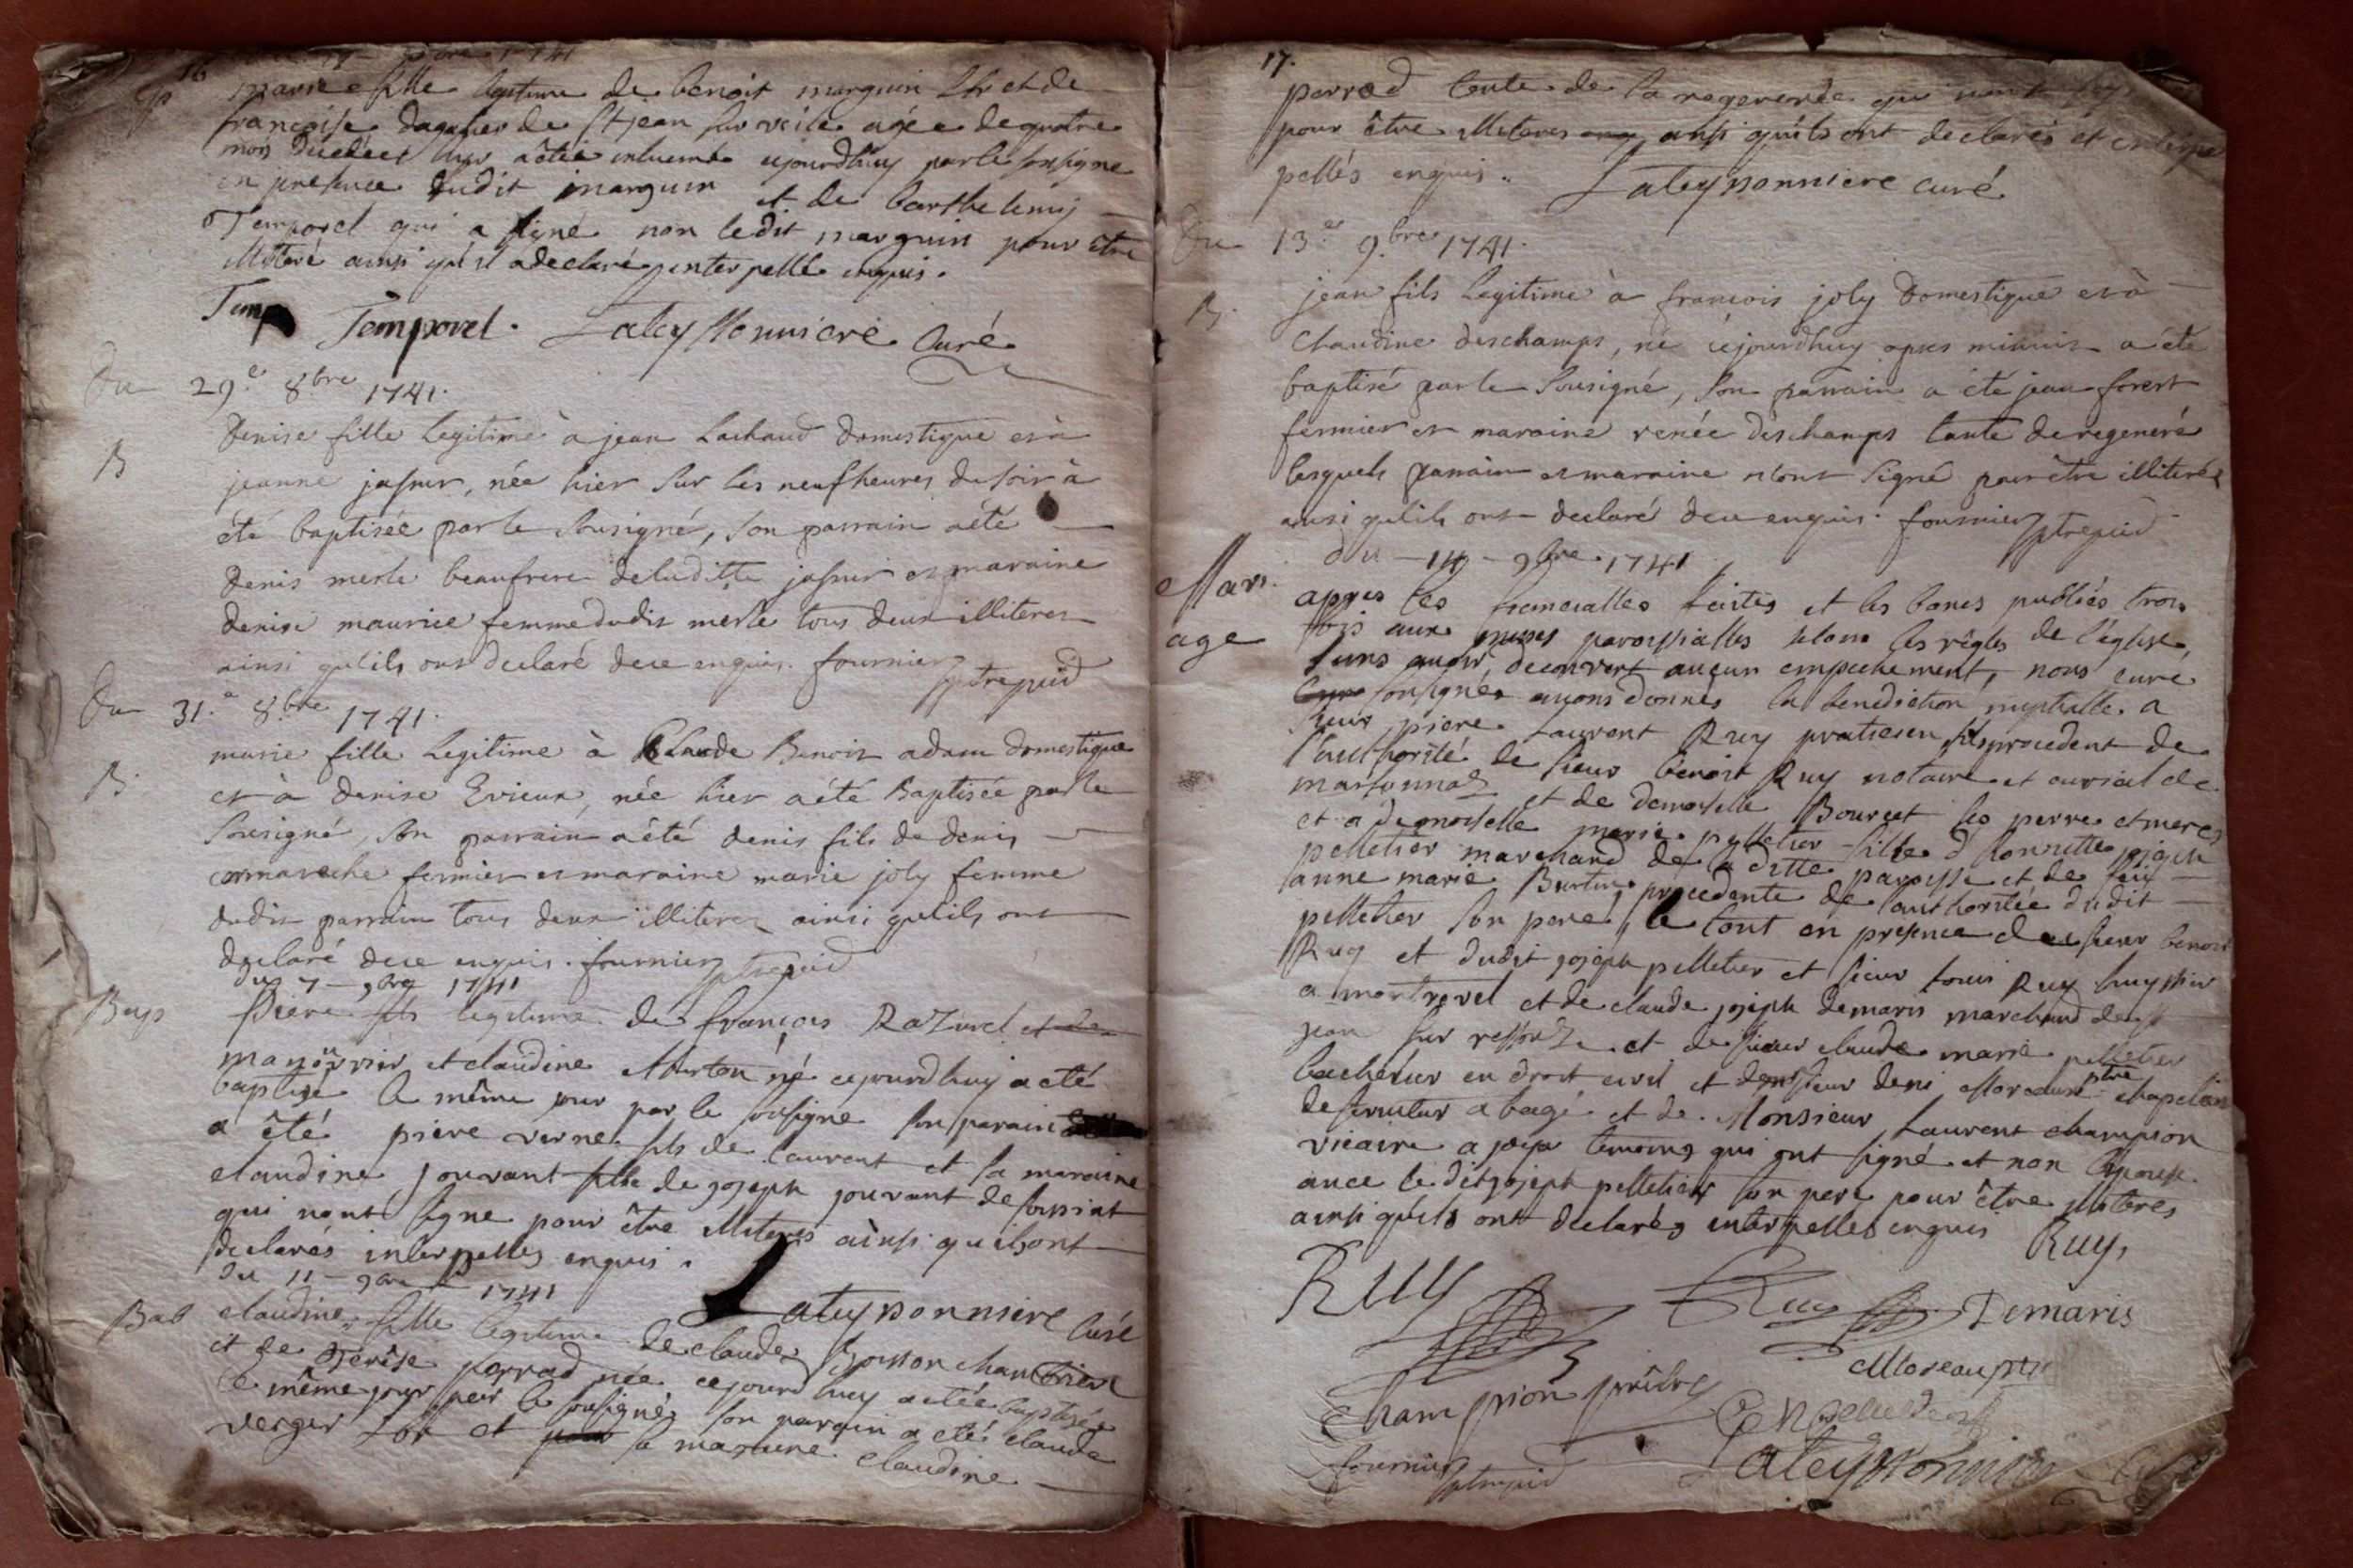 16
marie fille legitime de benoit marguin et de
françoise de St jean sur veile agée de quatre
mois hier a été inhumée cejourdhuy par le sousigne
en presence dudit marguin et de barthelemy
Temporel qui a signé non ledit marguin pour être
illiteré ainsi qu'il a declaré interpellé enquis.
Temp Temporel. Lateyssonniere Curé
Du 29.e 8bre 1741.
B
Denise fille legitime à jean Lachaud domestique et à
jeanne , née hier sur les neuf heures du soir à
été baptisée par le sousigné, son parrain a été
denis merle beaufrere de laditte et maraine
denise maurice femme dudit merle tous deux illiteres
ainsi qu'ils ont declaré de ce enquis. fournier
Du 31.e 8.bre 1741.
B.
marie fille legitime à Claude Benoit adam domestique
et à denise Evieux, née hier a été Baptisée par le
sousigné, son parrain a été denis fils de denis
cormareche fermier et maraine marie joly femme
dudit parrain tous deux illiteres ainsi qu'ils ont
declaré de ce enquis. fournier
du 7 - 9bre 1741
Bap
piere fils legitime de françois Razurel et de
manouvrier et claudine né cejourdhuy a été
baptisé le même jour par le sousigne son parain
a êté piere verne fils de laurent et sa maraine
claudine jouvant fille de joseph jouvant de
qui nont signe pour être illiteres ainsi qu'ils ont
declarés interpelles enquis.
du 11 - 9bre 1741
Lateyssonniere Curé
Bab
claudine fille legitime de claude
et de Terêse perrad née cejourd'huy a été baptisée
le même jour par le sousigné son parain a été claude
verger et pour sa maraine claudine
17.
perrad tente de la regenerée qui nont
pour être illiteres ainsi qu'ils ont declarés et inter
pellés enquis. Lateyssonniere curé
Du 13.e 9.bre 1741.
B.
jean fils legitime à francois joly domestique et à
Claudine deschamps, né cejourdhuy apres minuit a été
baptisé par le sousigné, son parrain a été jean forest
fermier et maraine renée deschamps tante de regeneré
lesquels parrain et maraine n'ont signé pour être illiterés
ainsi qu'ils ont declaré de ce enquis. fournier
du - 14 - 9bre 1741
Mari
age
appres les fiancialles faittes et les bancs publiés trois
fois aux messes paroissialles selon les règles de l'église,
sans avoir decouvert aucun empechement, nous curé
sousignés avons donnés la benediction nuptialle a
sieur piere Laurent Ruy praticien fils procedent de
l'authorité de sieur benoit Ruy notaire et de
marsonnas et de demoiselle Bourcet ses perre et mere
et a demoiselle marie pelletier fille d'honnette joseph
pelletier marchand de laditte paroisse et de feu
anne marie Burtin, procedente de l'authoritée dudit
pelletier son pere, le tout en presence du sieur benoit
Ruy et dudit joseph pelletier et sieur louis Ruy huyssier
a montrevel et de claude joseph demaris marchand de St
jean sur ressouze et de sieur claude marie pelletier
bachelier en droit civil et de sieur deni Moreau ptre chapelain
a bagé et de Monsieur Laurent champion
vicaire a temoins qui ont signé et non l'epouse
avec ledit joseph pelletier son pere pour être illiteres
ainsi qu'ils ont declarés interpelles enquis Ruy,
Ruy Ruy Demaris
Moreau ptre
Champion prêtre
fournier Lateyssonniere